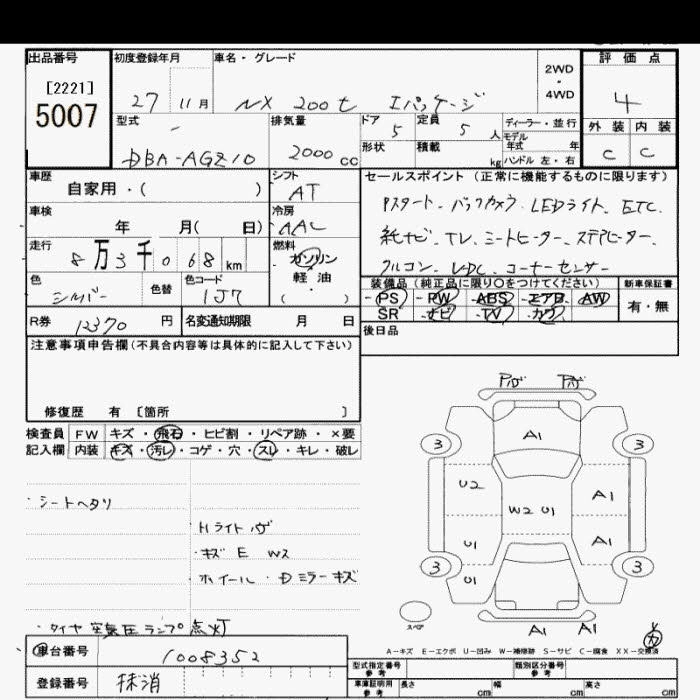 出品番号
[2221]
5007
初度登録年月
27 11月
車名・グレード
NX 200t Iパッケージ
2WD
・
4WD
評価点
4
外装 内装
C C
型式
DBA-AGZ10
排気量
2000cc
ドア
5
定員
5人
ディーラー・並行
モデル
年式 年
形状
積載
kg
ハンドル 左・右
車歴
自家用・( )
シフト
AT
セールスポイント (正常に機能するものに限ります)
Pスタート、バックカメラ、LEDライト、ETC、
純ナビ、TV、シートヒーター、ステアヒーター、
クルコン、VDC、コーナーセンサー
車検
年 月( 日)
冷房
AAC
走行
8万3千068km
燃料
ガソリン
軽油
( )
色
シルバー
色替
色コード
1J7
装備品(純正品に限り○をつけてください)
PS PW ABS エアB AW
SR ナビ TV カワ
新車保証書
有・無
R券 12370 円
名変通知期限 月 日
後日品
注意事項申告欄(不具合内容等は具体的に記入して下さい)
修復歴 有 [箇所 ]
検査員 FW キズ・飛石・ヒビ割・リペア跡・×要
記入欄 内装 キズ・汚レ・コゲ・穴・スレ・キレ・破レ
・シートヘタリ
Hライト
・キズ E W2
ホイール・Dミラーキズ
・タイヤ空気圧ランプ点灯
A1
3 3
U2 A1
W2 U1
U1 A1
3 3
U1
スペア
A1 A1
A-キズ E-エクボ U-凹み W-補修跡 S-サビ C-腐食 XX-交換済
車台番号
1008352
登録番号
抹消
型式指定番号
参考
類別区分番号
参考
車庫証明用
参考
長さ cm 幅 cm 高さ cm